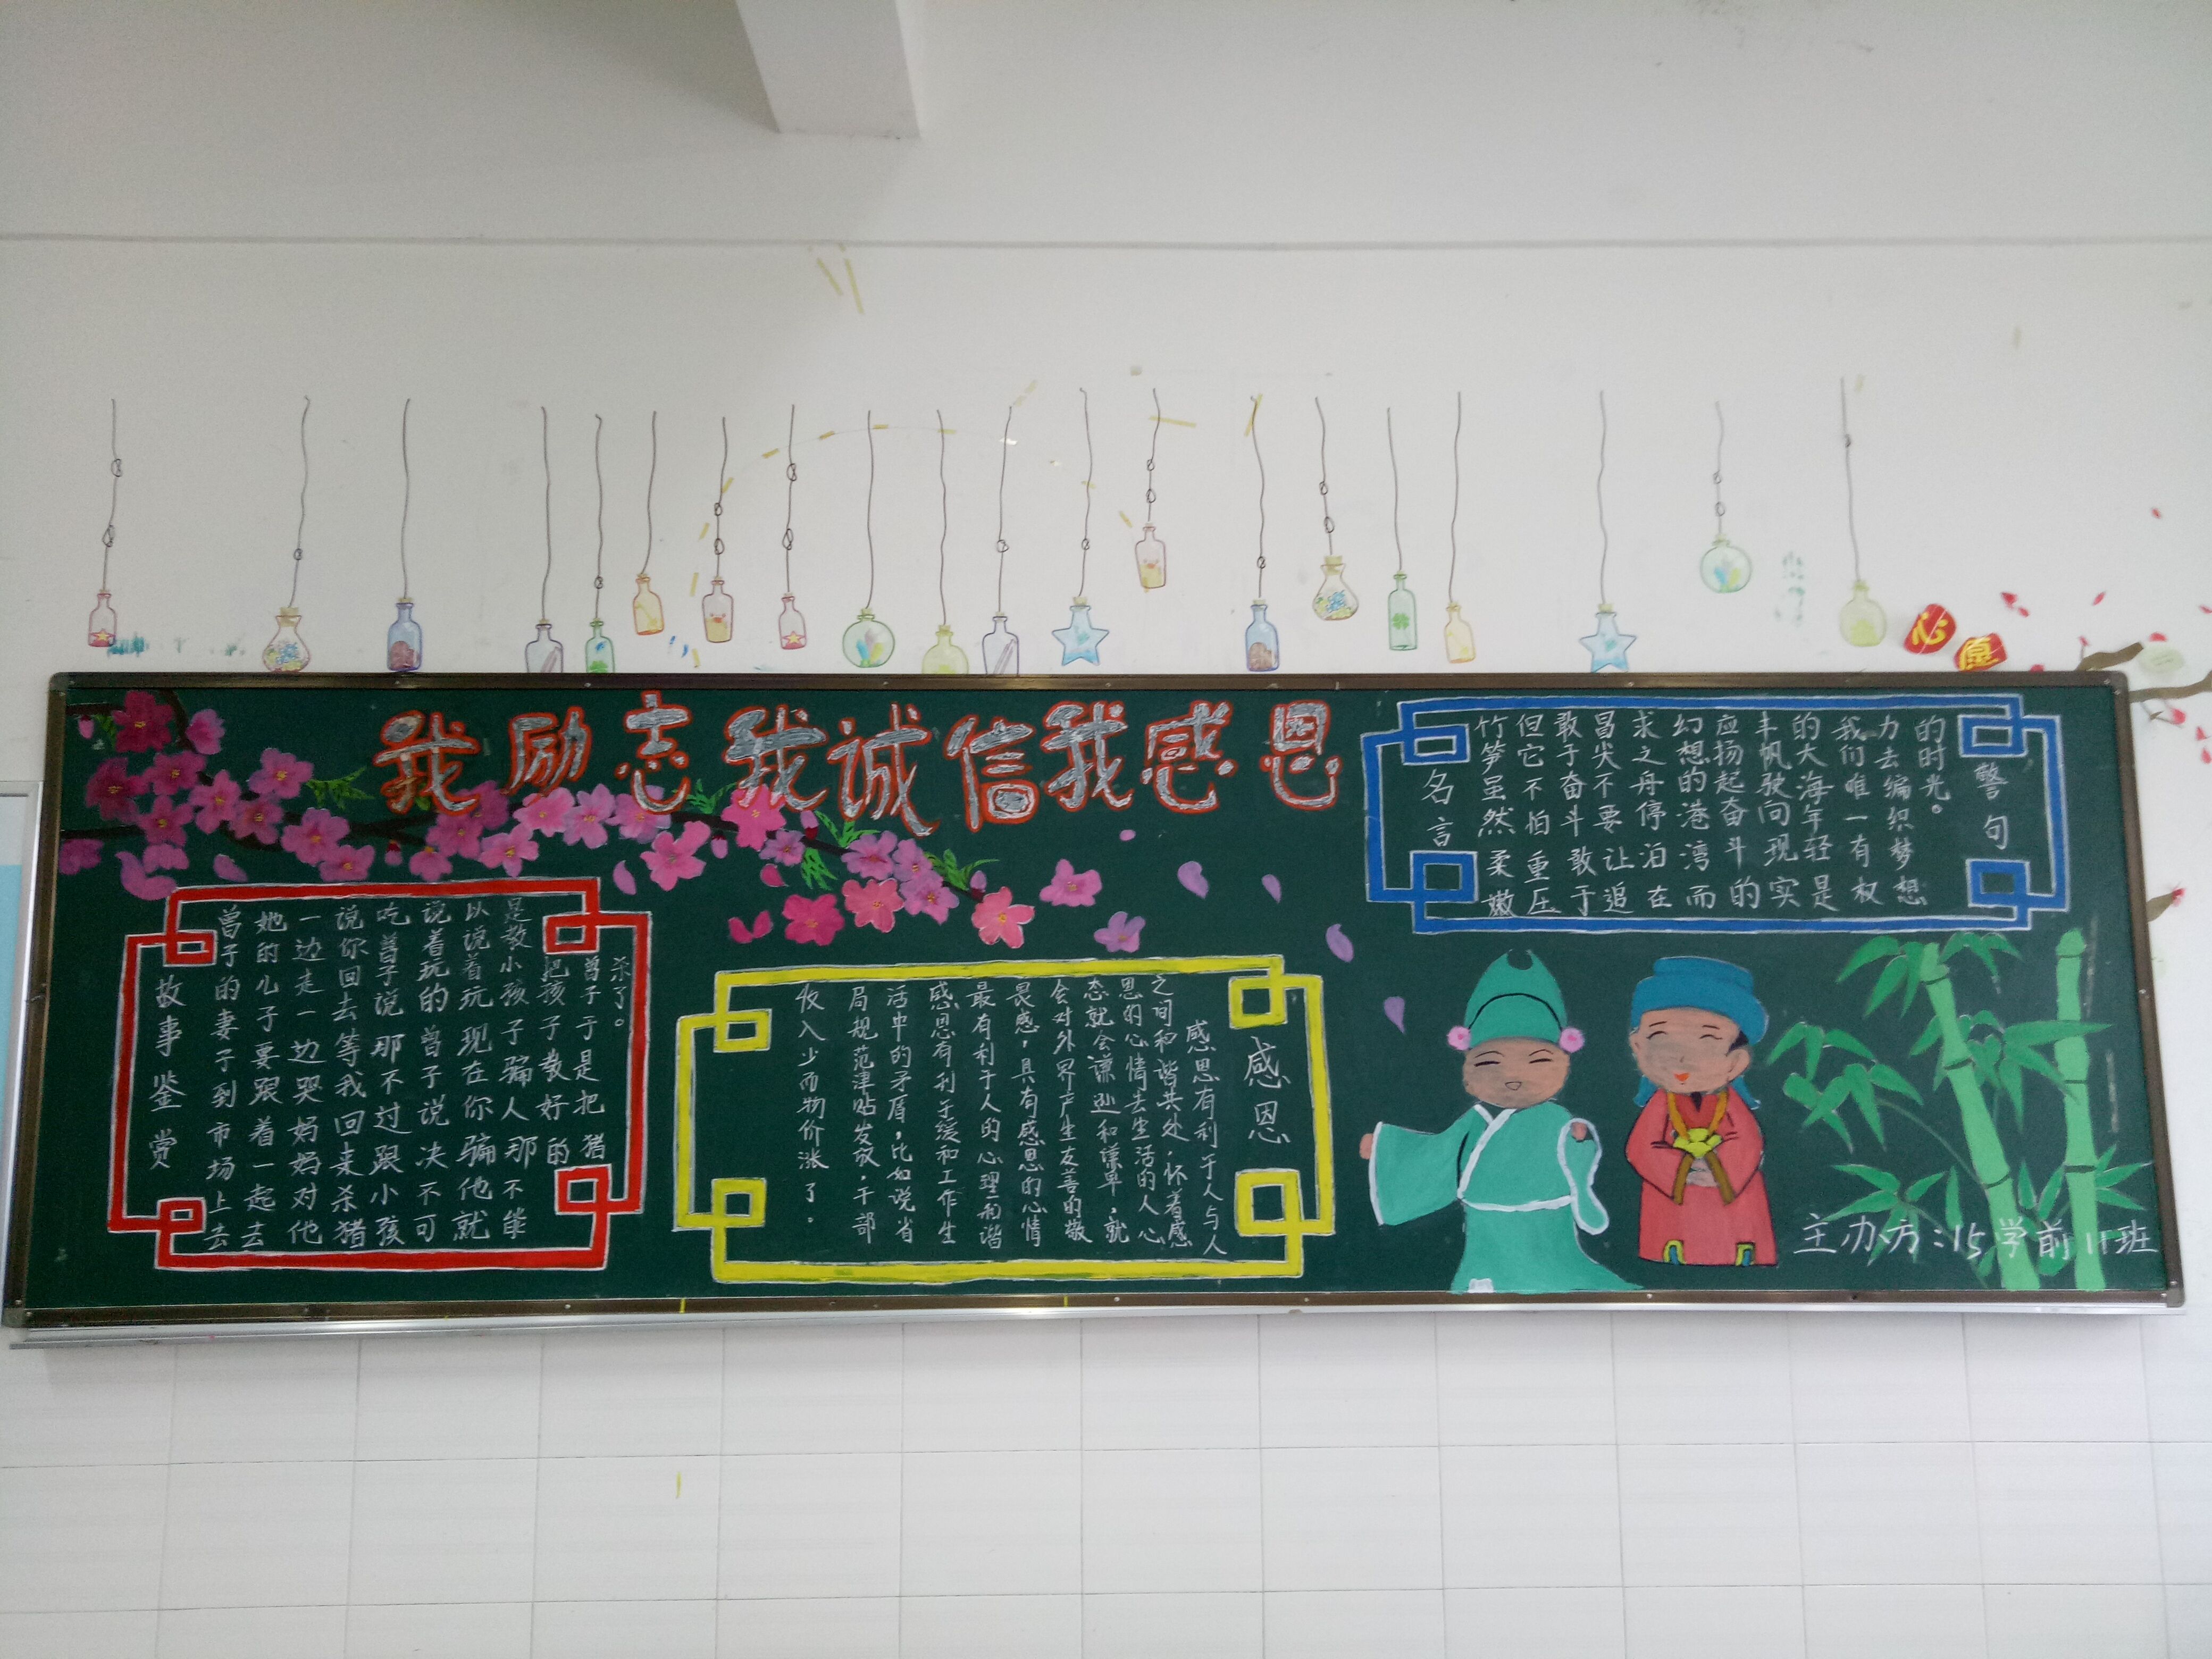 心愿
我励志我诚信我感恩
故事鉴赏
曾子的妻子到市场上去
她的儿子要跟着一起去
一边走一边哭妈妈对他
说你回去等我回来杀猪
吃曾子说那不过跟小孩
说着玩的曾子说决不可
以说着玩现在你骗他就
是教小孩子骗人那不能
把孩子教好的
曾子于是把猪
杀了。
感恩
感恩有利于人与人
之间和谐共处,怀着感
恩的心情去生活的人心
态就会谦逊和
会对外界产生友善的敬
畏感,具有感恩的心情
最有利于人的心理和谐
感恩有利于缓和工作生
活中的矛盾,比如说省
局规范津贴发放,干部
收入少而物价涨了。
名言
竹笋虽然柔嫩
但它不怕重压
敢于奋斗敢于
冒尖不要让追
求之舟停泊在
幻想的港湾而
应扬起奋斗的
丰帆驶向现实
的大海年轻是
我们唯一有权
力去编织梦想
的时光。
警句
主办方:15学前11班